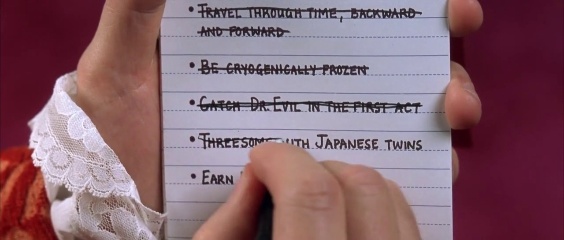 • TRAVEL THROUGH TIME, BACKWARD
AND FORWARD
• BE CRYOGENICALLY FROZEN
• CATCH DR. EVIL IN THE FIRST ACT
• THREESOME WITH JAPANESE TWINS
• EARN